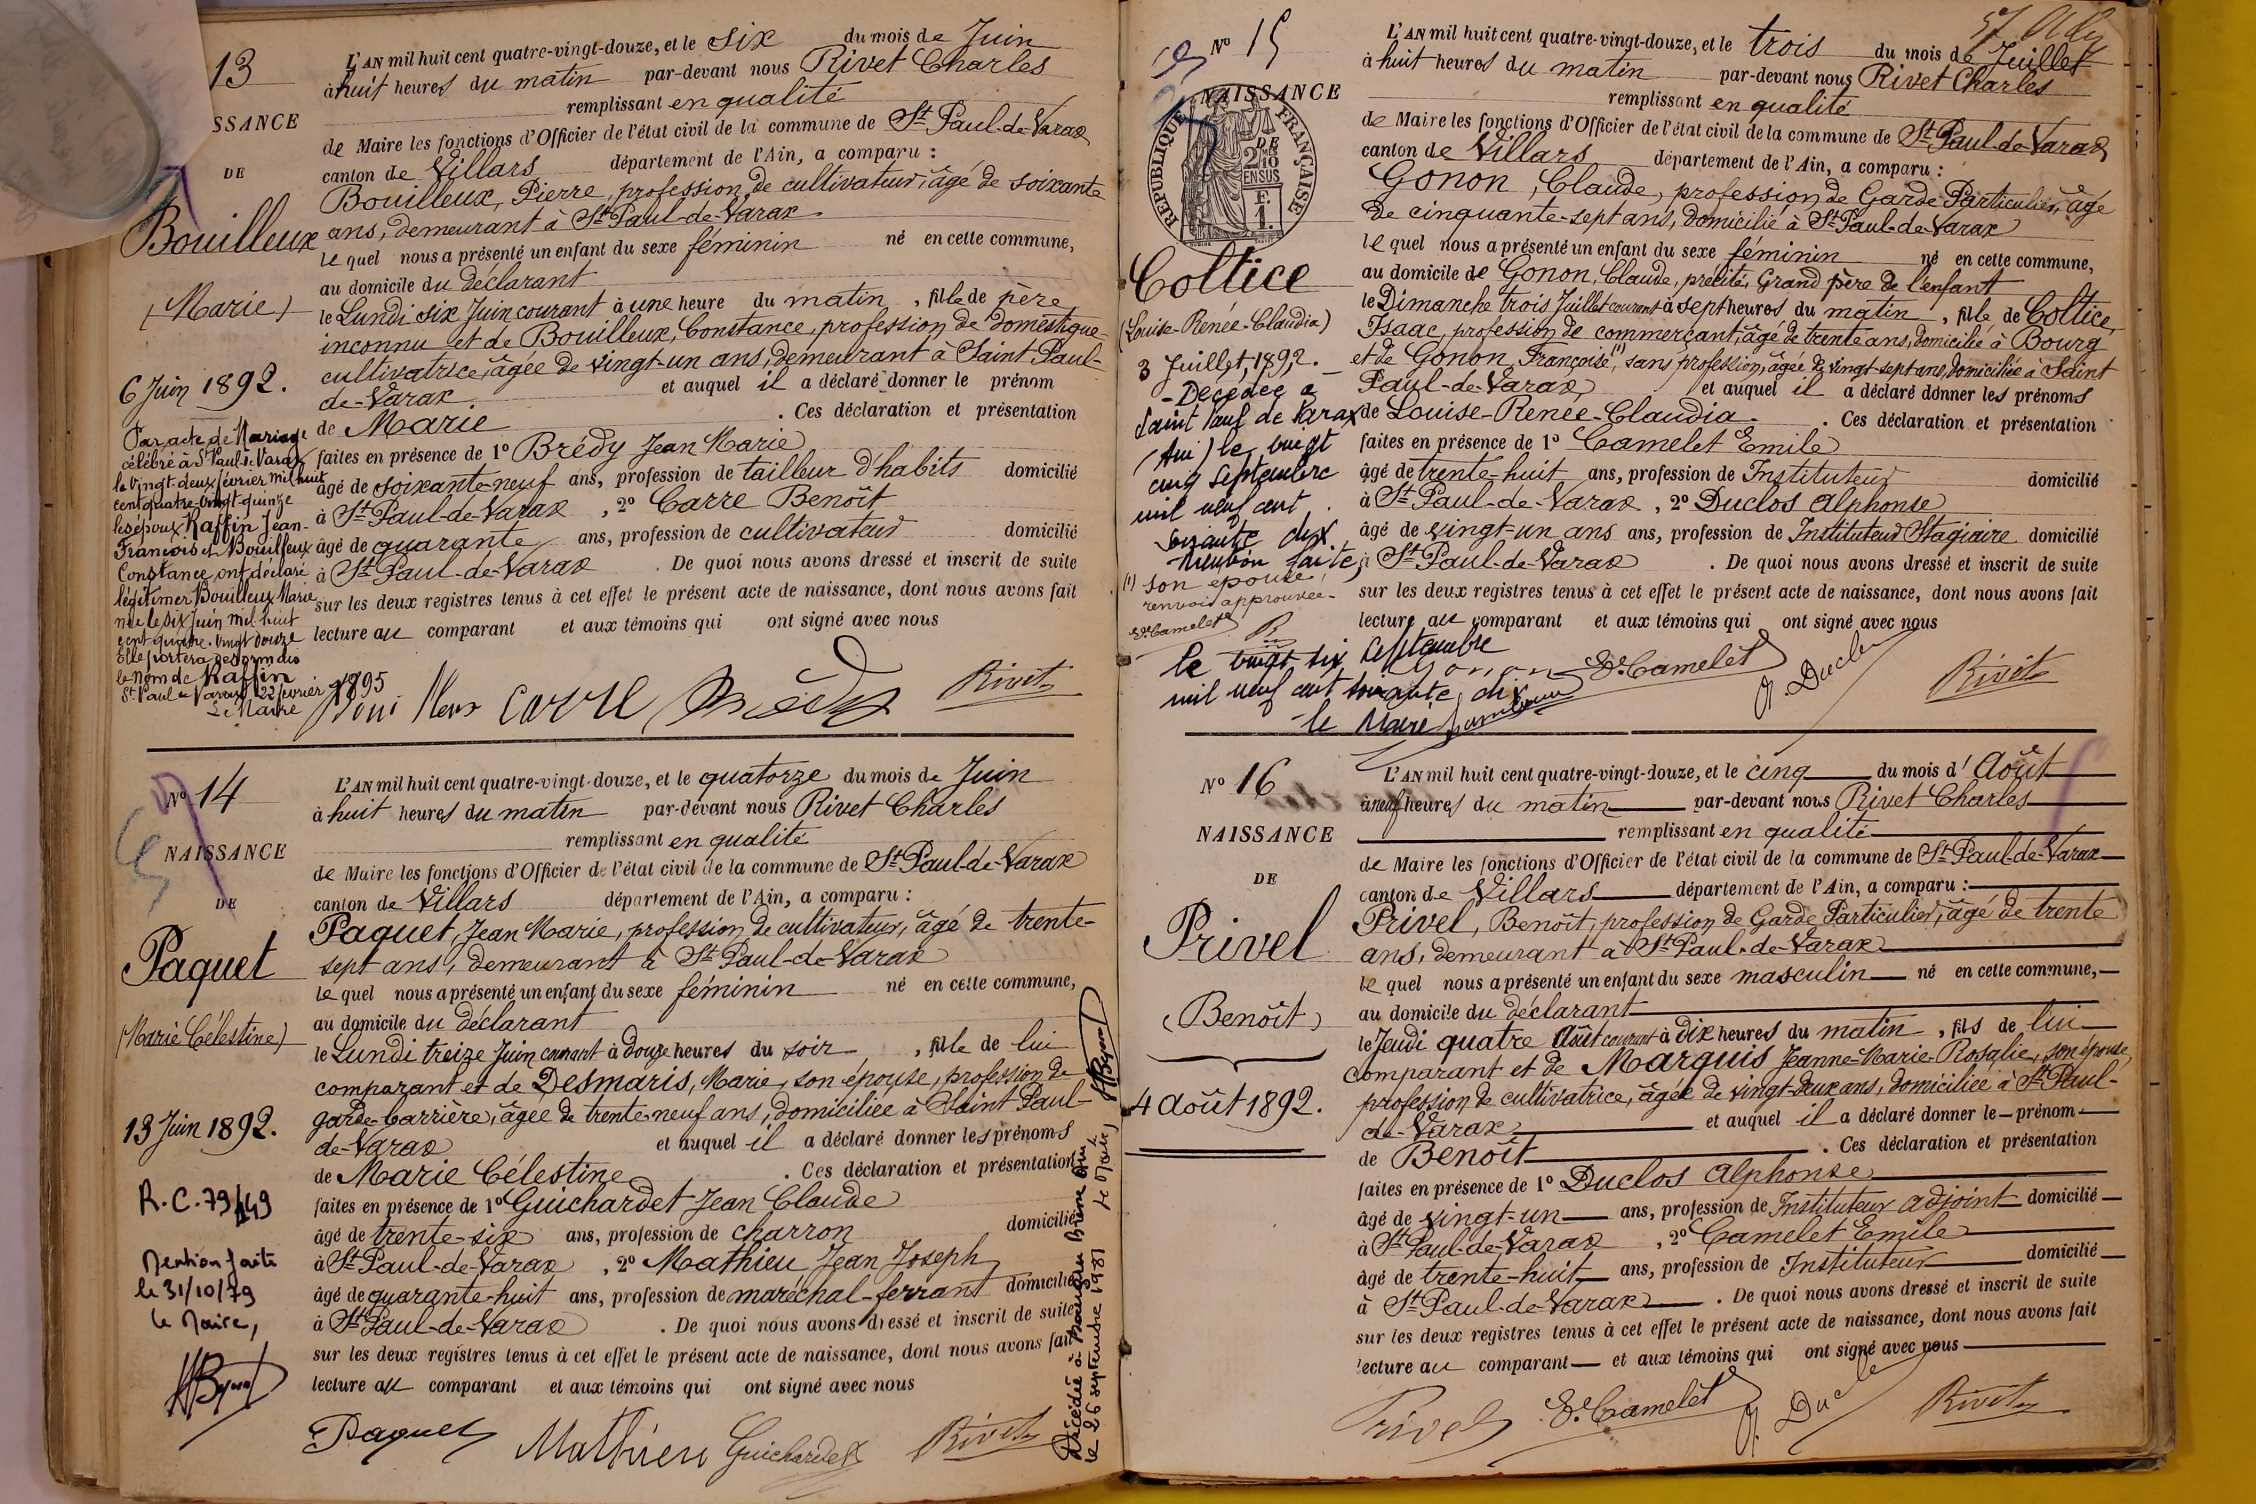 13
SSANCE
DE
Bouilleux
(Marie)
6 Juin 1892.
Par acte de Mariage
célébré à St Paul-de-Varax
le vingt-deux février mil huit
cent quatre-vingt-quinze
les époux Raffin Jean-
François et Bouilleux
Constance, ont déclaré
légitimer Bouilleux Marie
née le six Juin mil huit
cent quatre-vingt douze
Elle portera désormais
le nom de Raffin
St Paul de Varax 22 février 1895
Le Maire
L'AN mil huit cent quatre-vingt-douze, et le six du mois de Juin
à huit heures du matin par-devant nous Rivet Charles
remplissant en qualité
de Maire les fonctions d'Officier de l'état civil de la commune de St Paul-de-Varax
canton de Villars département de l'Ain, a comparu :
Bouilleux, Pierre, profession de cultivateur, âgé de soixante
ans, demeurant à St Paul-de-Varax
le quel nous a présenté un enfant du sexe féminin né en cette commune,
au domicile du déclarant
le Lundi six Juin courant à une heure du matin, fille de père
inconnu et de Bouilleux, Constance, profession de domestique
cultivatrice, âgée de vingt-un ans, demeurant à Saint Paul-
de-Varax et auquel il a déclaré donner le prénom
de Marie . Ces déclaration et présentation
faites en présence de 1º Brédy Jean Marie
âgé de soixante-neuf ans, profession de tailleur d'habits domicilié
à St Paul-de-Varax, 2º Carre Benoît
âgé de quarante ans, profession de cultivateur domicilié
à St Paul-de-Varax . De quoi nous avons dressé et inscrit de suite
sur les deux registres tenus à cet effet le présent acte de naissance, dont nous avons fait
lecture au comparant et aux témoins qui ont signé avec nous
Carre Brédy Rivet
Nº 14
NAISSANCE
DE
Paquet
(Marie Célestine)
13 Juin 1892.
R.C. 79/449
Mention faite
le 31/10/79
le Maire,
L'AN mil huit cent quatre-vingt-douze, et le quatorze du mois de Juin
à huit heures du matin par-devant nous Rivet Charles
remplissant en qualité
de Maire les fonctions d'Officier de l'état civil de la commune de St Paul-de-Varax
canton de Villars département de l'Ain, a comparu :
Paquet, Jean Marie, profession de cultivateur, âgé de trente-
sept ans, demeurant à St Paul-de-Varax
le quel nous a présenté un enfant du sexe féminin né en cette commune,
au domicile du déclarant
le Lundi treize Juin courant à douze heures du soir, fille de lui
comparant et de Desmaris, Marie, son épouse, profession de
garde-barrière, âgée de trente-neuf ans, domiciliée à Saint Paul-
de-Varax et auquel il a déclaré donner les prénoms
de Marie Célestine . Ces déclaration et présentation
faites en présence de 1º Guichardet Jean Claude
âgé de trente-six ans, profession de charron domicilié
à St Paul-de-Varax, 2º Mathieu Jean Joseph
âgé de quarante-huit ans, profession de maréchal-ferrant domicilié
à St Paul-de-Varax . De quoi nous avons dressé et inscrit de suite
sur les deux registres tenus à cet effet le présent acte de naissance, dont nous avons fait
lecture au comparant et aux témoins qui ont signé avec nous
Paquet Mathieu Guichardet Rivet
Décédée à
le 26 septembre 1981 Le Maire,
Nº 15
NAISSANCE
RÉPUBLIQUE FRANÇAISE
2 DMES
10
EN SUS
F.
1.
Coltice
(Louise-Renée-Claudia)
3 Juillet, 1892.
Décédée a
Saint Paul de Varax
(Ain) le vingt
cinq septembre
mil neuf cent
soixante dix.
Mention faite,
(1) son épouse,
renvoi approuvée.
Em Camelet R
le vingt six septembre
mil neuf cent soixante dix
le Maire
L'AN mil huit cent quatre-vingt-douze, et le trois du mois de Juillet
à huit heures du matin par-devant nous Rivet Charles
remplissant en qualité
de Maire les fonctions d'Officier de l'état civil de la commune de St Paul-de-Varax
canton de Villars département de l'Ain, a comparu :
Gonon, Claude, profession de Garde Particulier, âgé
de cinquante-sept ans, domicilié à St Paul-de-Varax
le quel nous a présenté un enfant du sexe féminin né en cette commune,
au domicile de Gonon, Claude, précité, Grand père de l'enfant
le Dimanche trois Juillet courant à sept heures du matin, fille de Coltice,
Isaac, profession de commerçant, âgé de trente ans, domicilié à Bourg
et de Gonon, Françoise (1), sans profession, âgée de vingt-sept ans, domiciliée à Saint
Paul-de-Varax et auquel il a déclaré donner les prénoms
de Louise-Renée-Claudia . Ces déclaration et présentation
faites en présence de 1º Camelet Emile
âgé de trente-huit ans, profession de Instituteur domicilié
à St Paul-de-Varax, 2º Duclos Alphonse
âgé de vingt-un ans ans, profession de Instituteur Stagiaire domicilié
à St Paul-de-Varax . De quoi nous avons dressé et inscrit de suite
sur les deux registres tenus à cet effet le présent acte de naissance, dont nous avons fait
lecture au comparant et aux témoins qui ont signé avec nous
Gonon Em Camelet A. Duclos Rivet
Nº 16
NAISSANCE
DE
Privel
(Benoît)
4 Août 1892.
L'AN mil huit cent quatre-vingt-douze, et le cinq du mois d'Août
à neuf heures du matin par-devant nous Rivet Charles
remplissant en qualité
de Maire les fonctions d'Officier de l'état civil de la commune de St Paul-de-Varax
canton de Villars département de l'Ain, a comparu :
Privel, Benoît, profession de Garde Particulier, âgé de trente
ans, demeurant à St Paul-de-Varax
le quel nous a présenté un enfant du sexe masculin né en cette commune,
au domicile du déclarant
le Jeudi quatre Août courant à dix heures du matin, fils de lui
comparant et de Marquis Jeanne-Marie-Rosalie, son épouse,
profession de cultivatrice, âgée de vingt-deux ans, domiciliée à St Paul-
de-Varax et auquel il a déclaré donner le prénom
de Benoît . Ces déclaration et présentation
faites en présence de 1º Duclos Alphonse
âgé de vingt-un ans, profession de Instituteur adjoint domicilié
à St Paul-de-Varax, 2º Camelet Emile
âgé de trente-huit ans, profession de Instituteur domicilié
à St Paul-de-Varax . De quoi nous avons dressé et inscrit de suite
sur les deux registres tenus à cet effet le présent acte de naissance, dont nous avons fait
lecture au comparant et aux témoins qui ont signé avec nous
Privel Em Camelet A. Duclos Rivet